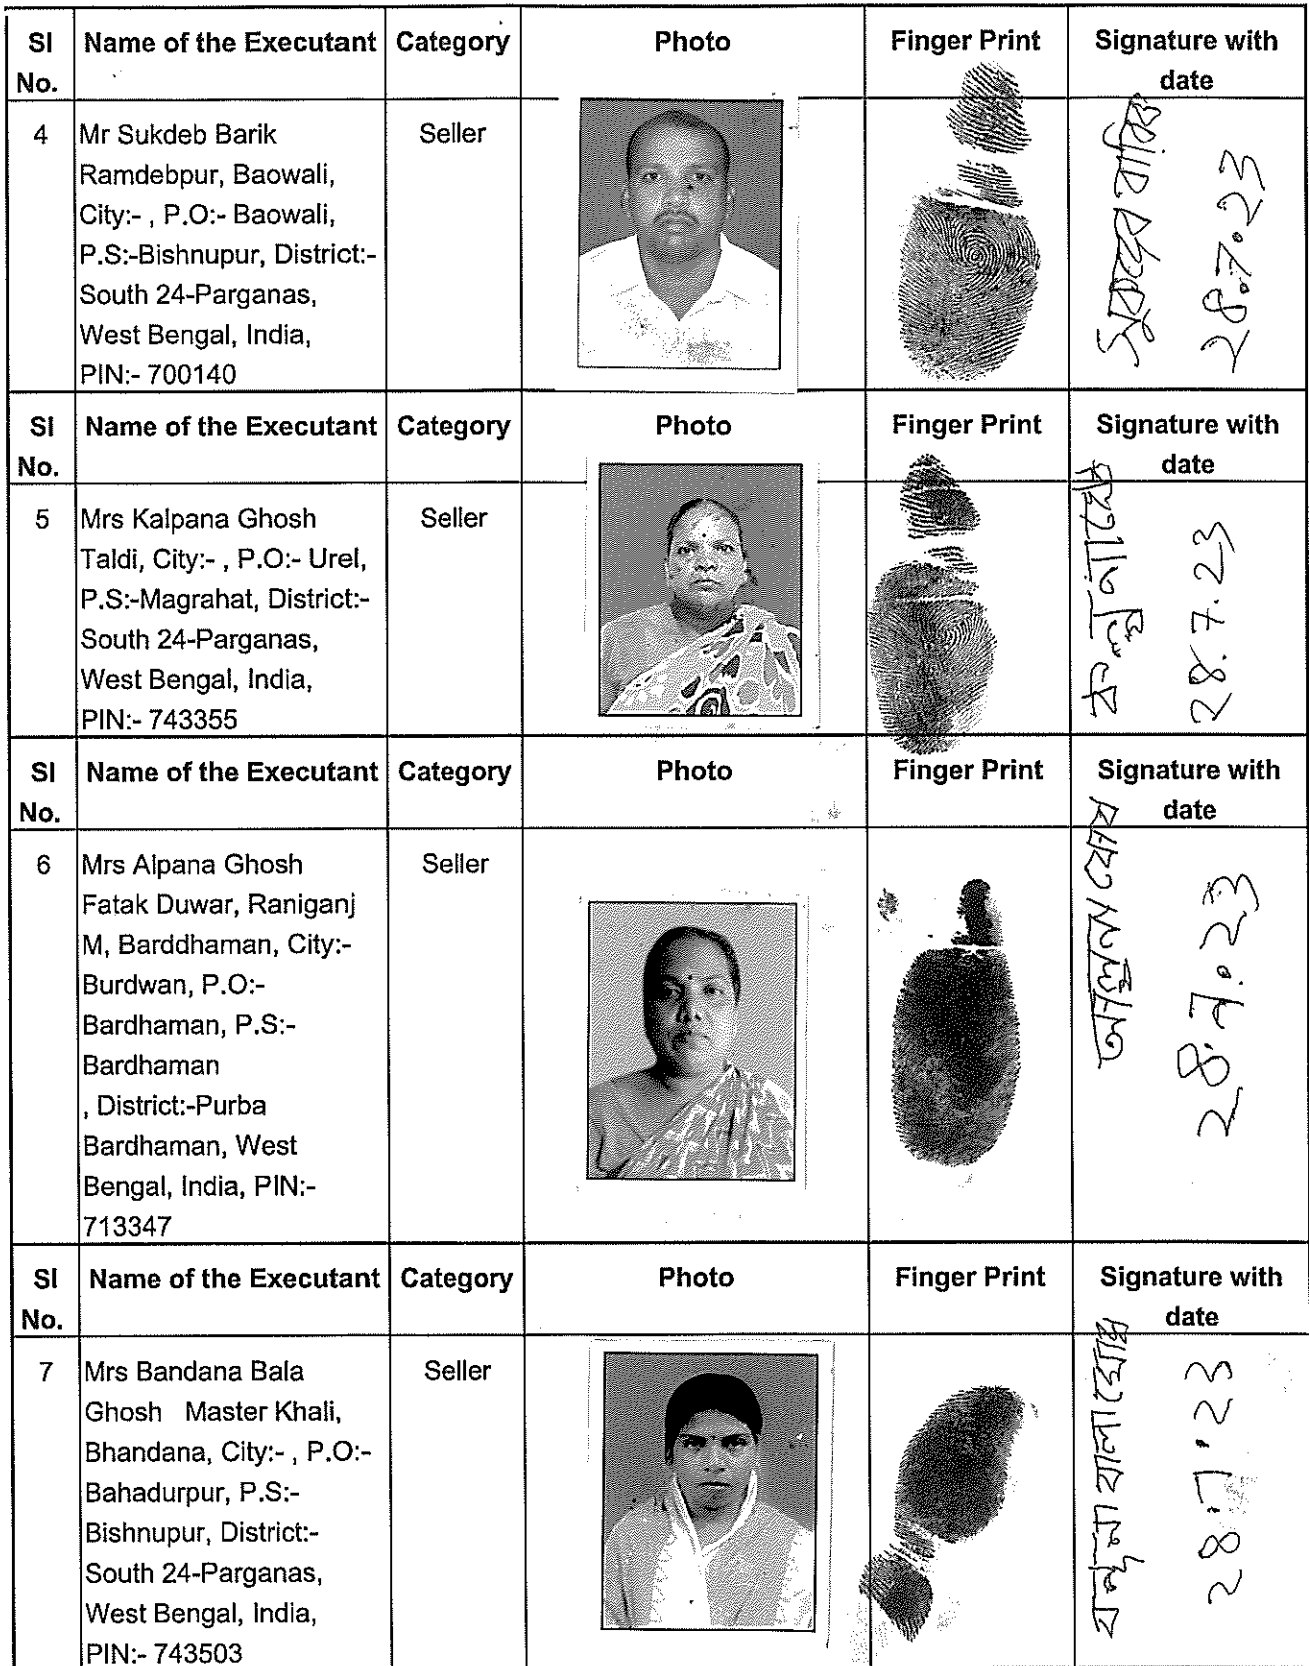 Sl Name of the Executant Category Photo Finger Print Signature with
No. date
4 Mr Sukdeb Barik Seller
Ramdebpur, Baowali,
City:- , P.O:- Baowali,
P.S:-Bishnupur, District:-
South 24-Parganas,
West Bengal, India,
PIN:- 700140
28.7.23
Sl Name of the Executant Category Photo Finger Print Signature with
No. date
5 Mrs Kalpana Ghosh Seller
Taldi, City:- , P.O:- Urel,
P.S:-Magrahat, District:-
South 24-Parganas,
West Bengal, India,
PIN:- 743355
28.7.23
Sl Name of the Executant Category Photo Finger Print Signature with
No. date
6 Mrs Alpana Ghosh Seller
Fatak Duwar, Raniganj
M, Barddhaman, City:-
Burdwan, P.O:-
Bardhaman, P.S:-
Bardhaman
, District:-Purba
Bardhaman, West
Bengal, India, PIN:-
713347
28.7.23
Sl Name of the Executant Category Photo Finger Print Signature with
No. date
7 Mrs Bandana Bala Seller
Ghosh Master Khali,
Bhandana, City:- , P.O:-
Bahadurpur, P.S:-
Bishnupur, District:-
South 24-Parganas,
West Bengal, India,
PIN:- 743503
28.7.23